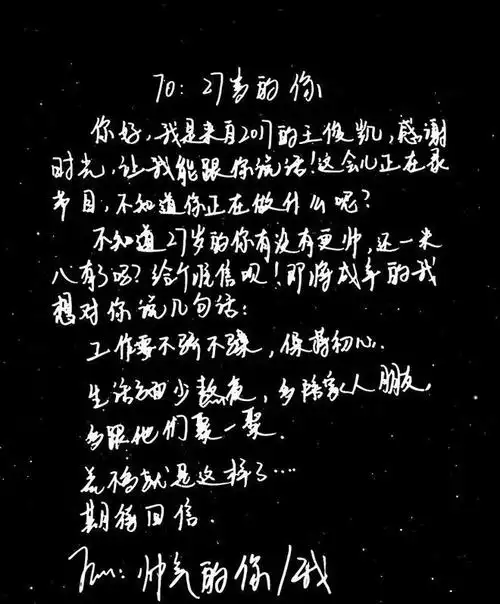 To: 27岁的你
你好,我是来自2017的王俊凯,感谢
时光,让我能跟你说话!这会儿正在录
节目,不知道你正在做什么呢?
不知道27岁的你有没有更帅,还一米
八有了吗?给个准信呗!即将成年的我
想对你说几句话:
工作要不骄不躁,保持初心.
生活要少熬夜,多陪家人朋友,
多跟他们聚一聚.
差不多就是这样了....
期待回信.
From:帅气的你/我